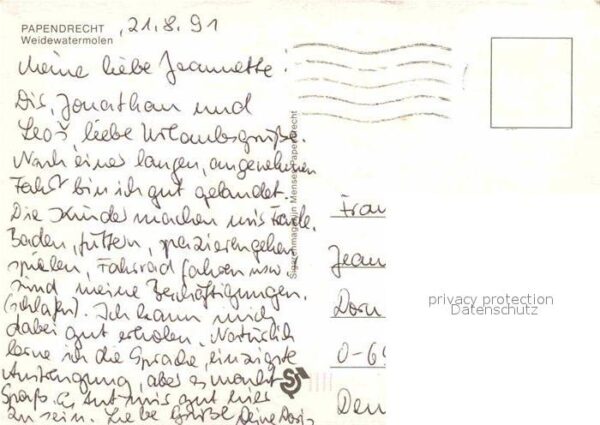 PAPENDRECHT
Weidewatermolen
21.8.91
Meine liebe Jeannette!
Dir, Jonathan und
Leoš, liebe Urlaubsgrüße.
Nach einer langen, angenehmen
Fahrt bin ich gut gelandet.
Die Kinder machen uns Freude.
Baden, füttern, spazierengehen
spielen, Fahrrad fahren usw.
sind meine Beschäftigungen.
(schlafen). Ich kann mich
dabei gut erholen. Natürlich
lerne ich die Sprache, einzigste
Anstrengung, aber es macht
Spaß. Es tut mir gut hier
zu sein. Liebe Grüße Deine Doris
Sigarenmagazijn Mensen Papendrecht
Frau
Jean
Dorn
O-69
Den
privacy protection
Datenschutz